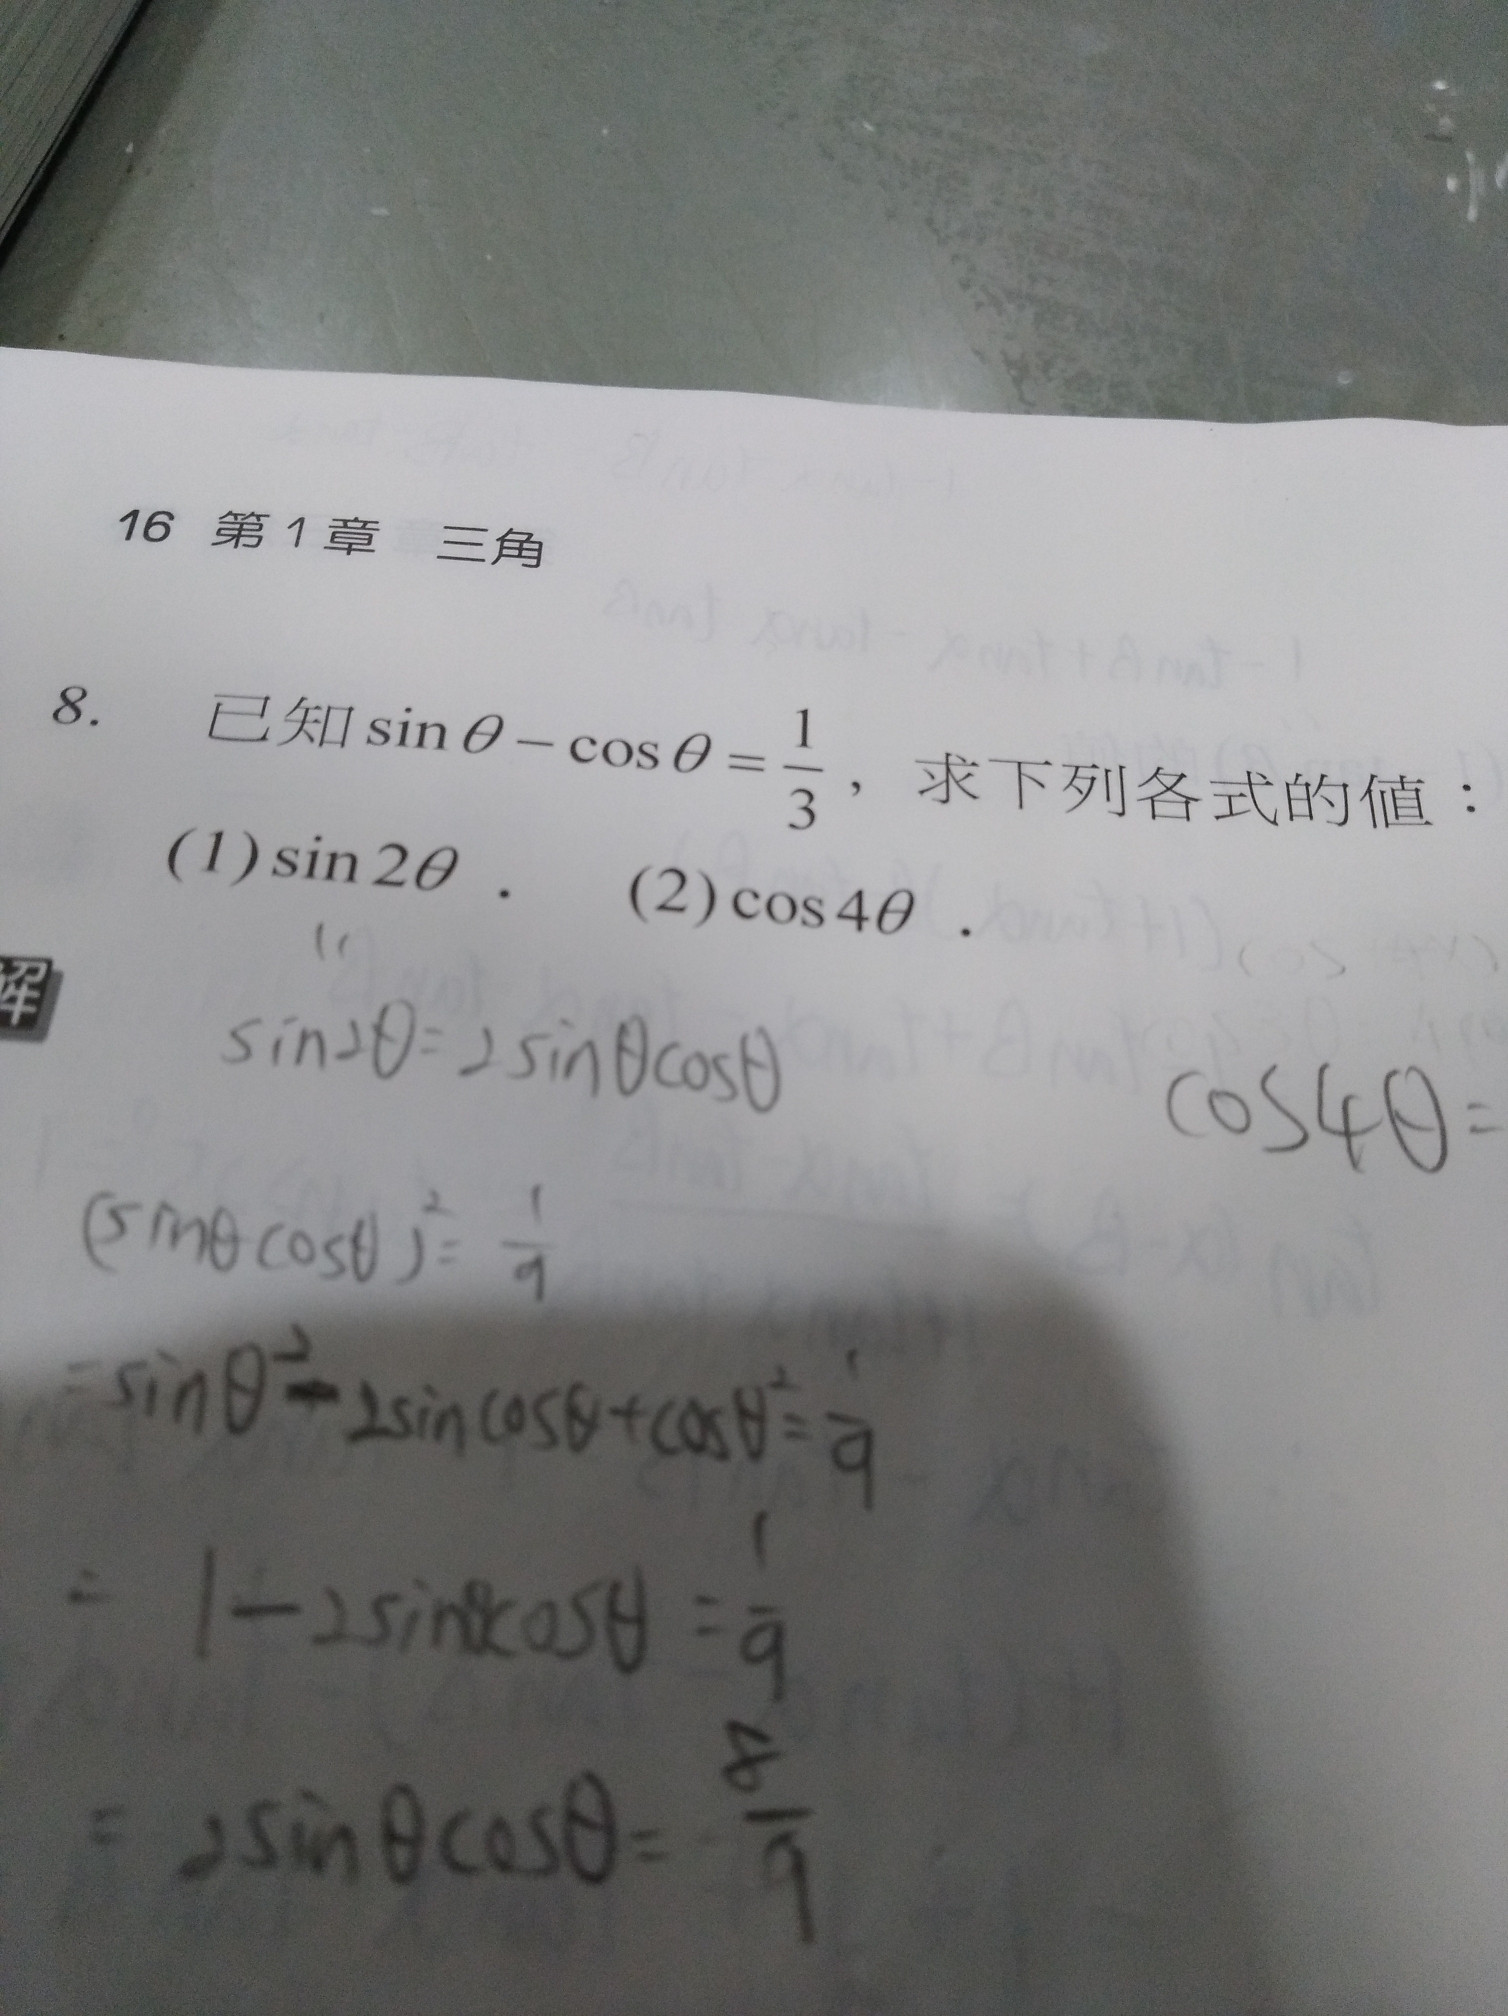 16 第1章 三角
8. 已知 sin θ − cos θ = 1/3 , 求下列各式的值：
(1) sin 2θ . (2) cos 4θ .
解
sin2θ = 2sinθcosθ
cos4θ =
(sinθcosθ)² = 1/9
= sinθ² - 2sincosθ + cosθ² = 1/9
= 1 - 2sinθcosθ = 1/9
= 2sinθcosθ = 8/9